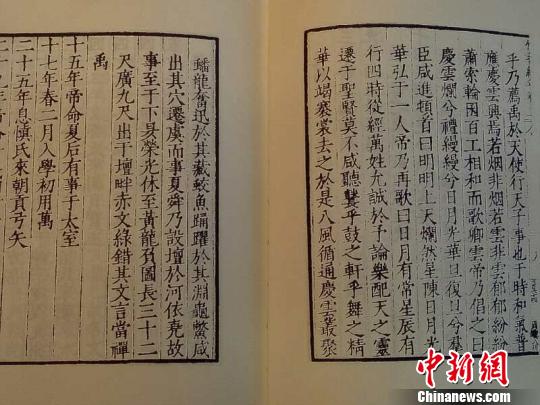 乎乃薦禹於天使行天子事也于時和氣普
應慶雲興焉若烟非烟若雲非雲郁郁紛紛
蕭索輪囷百工相和而歌卿雲帝乃倡之曰
慶雲爛兮禮縵縵兮日月光華旦復旦兮羣
臣咸進頓首曰明明上天爛然星陳日月光
華弘于一人帝乃再歌曰日月有常星辰有
行四時從經萬姓允誠於予論樂配天之靈
遷于聖賢莫不咸聽鼚乎鼓之軒乎舞之精
華以竭褰裳去之於是八風循通慶雲叢聚
蟠龍奮迅於其藏蛟魚踊躍於其淵龜鱉咸
出其穴遷虞而事夏舜乃設壇於河依堯故
事至于下昃榮光休至黃龍負圖長三十二
尺廣九尺出于壇畔赤文綠錯其文言當禪
禹
十五年帝命夏后有事于太室
十七年春二月入學初用萬
二十五年息慎氏來朝貢弓矢
中新网
CHINANEWS.COM